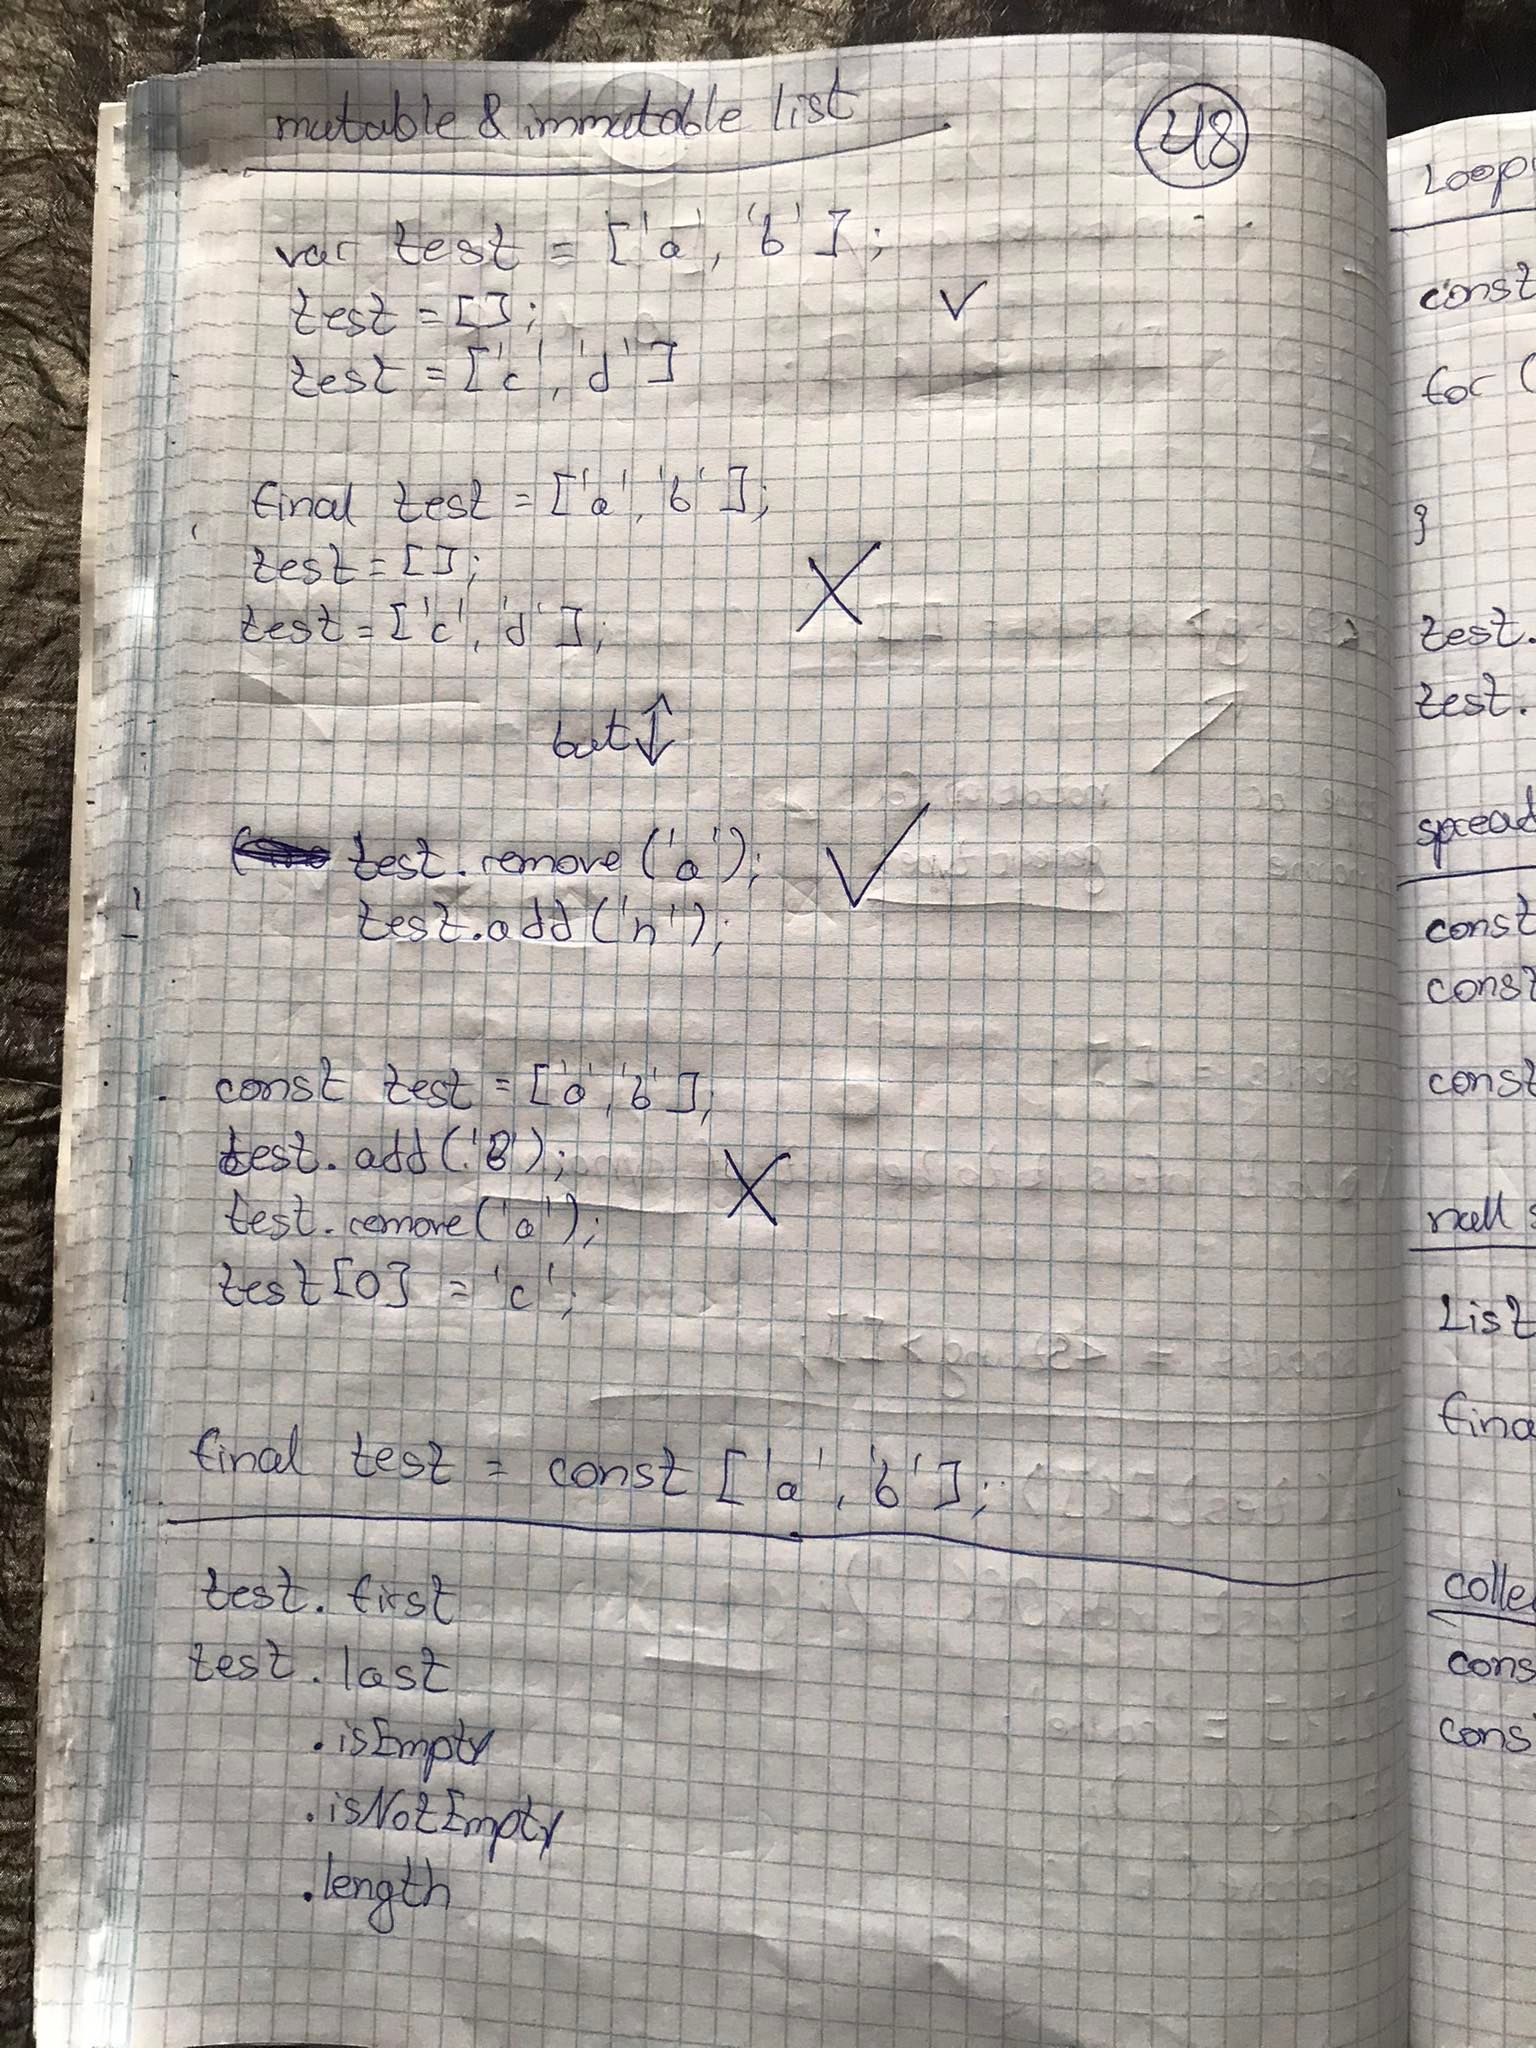 mutable & immutable list
48
var test = ['a', 'b'];
test = [];
test = ['c', 'd']
final test = ['a', 'b'];
test = [];
test = ['c', 'd'];
but
test.remove('a');
test.add('n');
const test = ['a', 'b'];
test.add('B');
test.remove('a');
test[0] = 'c';
final test = const ['a', 'b'];
test.first
test.last
.isEmpty
.isNotEmpty
.length
Loopi
const
for (
}
test.
test.
spread
const
const
const
null s
List
fina
colle
cons
cons